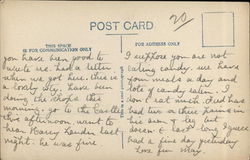 POST CARD
20
THIS SPACE
IS FOR COMMUNICATION ONLY
FOR ADDRESS ONLY
you have been good to
write us. had a letter
when we got here. this is
a lovely city, have been
doing the shops this
morning. go to the Castle
this afternoon. went to
hear Harry Lauder last
night. he was fine
I suppose you are not
eating candy. we have
four meals a day and
lots of candy eaten. I
don't eat much. Fred has
had two or three pains in
his arm & leg but
doesn't last long I guess
had a fine day yesterday
love from May